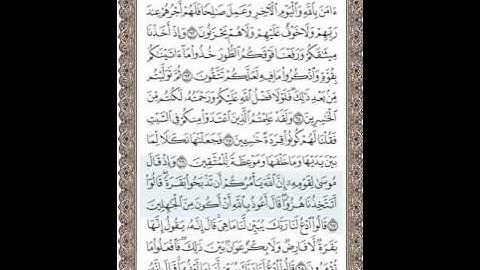 ءَامَنَ بِٱللَّهِ وَٱلْيَوْمِ ٱلْءَاخِرِ وَعَمِلَ صَٰلِحًا فَلَهُمْ أَجْرُهُمْ عِندَ
رَبِّهِمْ وَلَا خَوْفٌ عَلَيْهِمْ وَلَا هُمْ يَحْزَنُونَ ٦٢ وَإِذْ أَخَذْنَا
مِيثَٰقَكُمْ وَرَفَعْنَا فَوْقَكُمُ ٱلطُّورَ خُذُوا۟ مَآ ءَاتَيْنَٰكُم
بِقُوَّةٍ وَٱذْكُرُوا۟ مَا فِيهِ لَعَلَّكُمْ تَتَّقُونَ ٦٣ ثُمَّ تَوَلَّيْتُم
مِّنۢ بَعْدِ ذَٰلِكَ ۖ فَلَوْلَا فَضْلُ ٱللَّهِ عَلَيْكُمْ وَرَحْمَتُهُۥ لَكُنتُم مِّنَ
ٱلْخَٰسِرِينَ ٦٤ وَلَقَدْ عَلِمْتُمُ ٱلَّذِينَ ٱعْتَدَوْا۟ مِنكُمْ فِى ٱلسَّبْتِ
فَقُلْنَا لَهُمْ كُونُوا۟ قِرَدَةً خَٰسِـِٔينَ ٦٥ فَجَعَلْنَٰهَا نَكَٰلًا لِّمَا
بَيْنَ يَدَيْهَا وَمَا خَلْفَهَا وَمَوْعِظَةً لِّلْمُتَّقِينَ ٦٦ وَإِذْ قَالَ
مُوسَىٰ لِقَوْمِهِۦٓ إِنَّ ٱللَّهَ يَأْمُرُكُمْ أَن تَذْبَحُوا۟ بَقَرَةً ۖ قَالُوٓا۟
أَتَتَّخِذُنَا هُزُوًا ۖ قَالَ أَعُوذُ بِٱللَّهِ أَنْ أَكُونَ مِنَ ٱلْجَٰهِلِينَ
٦٧ قَالُوا۟ ٱدْعُ لَنَا رَبَّكَ يُبَيِّن لَّنَا مَا هِىَ ۚ قَالَ إِنَّهُۥ يَقُولُ إِنَّهَا
بَقَرَةٌ لَّا فَارِضٌ وَلَا بِكْرٌ عَوَانٌۢ بَيْنَ ذَٰلِكَ ۖ فَٱفْعَلُوا۟ مَا
تُؤْمَرُونَ ٦٨ قَالُوا۟ ٱدْعُ لَنَا رَبَّكَ يُبَيِّن لَّنَا مَا لَوْنُهَا ۚ قَالَ إِنَّهُۥ